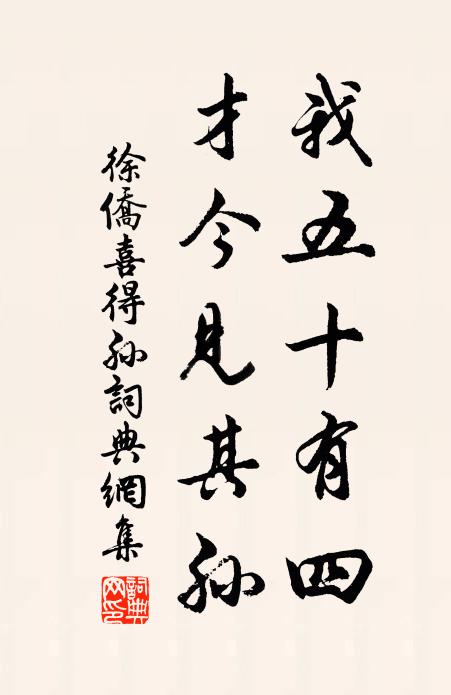 我五十有四
才今見其孙
徐僑喜得孙詞典網集
詞典網印